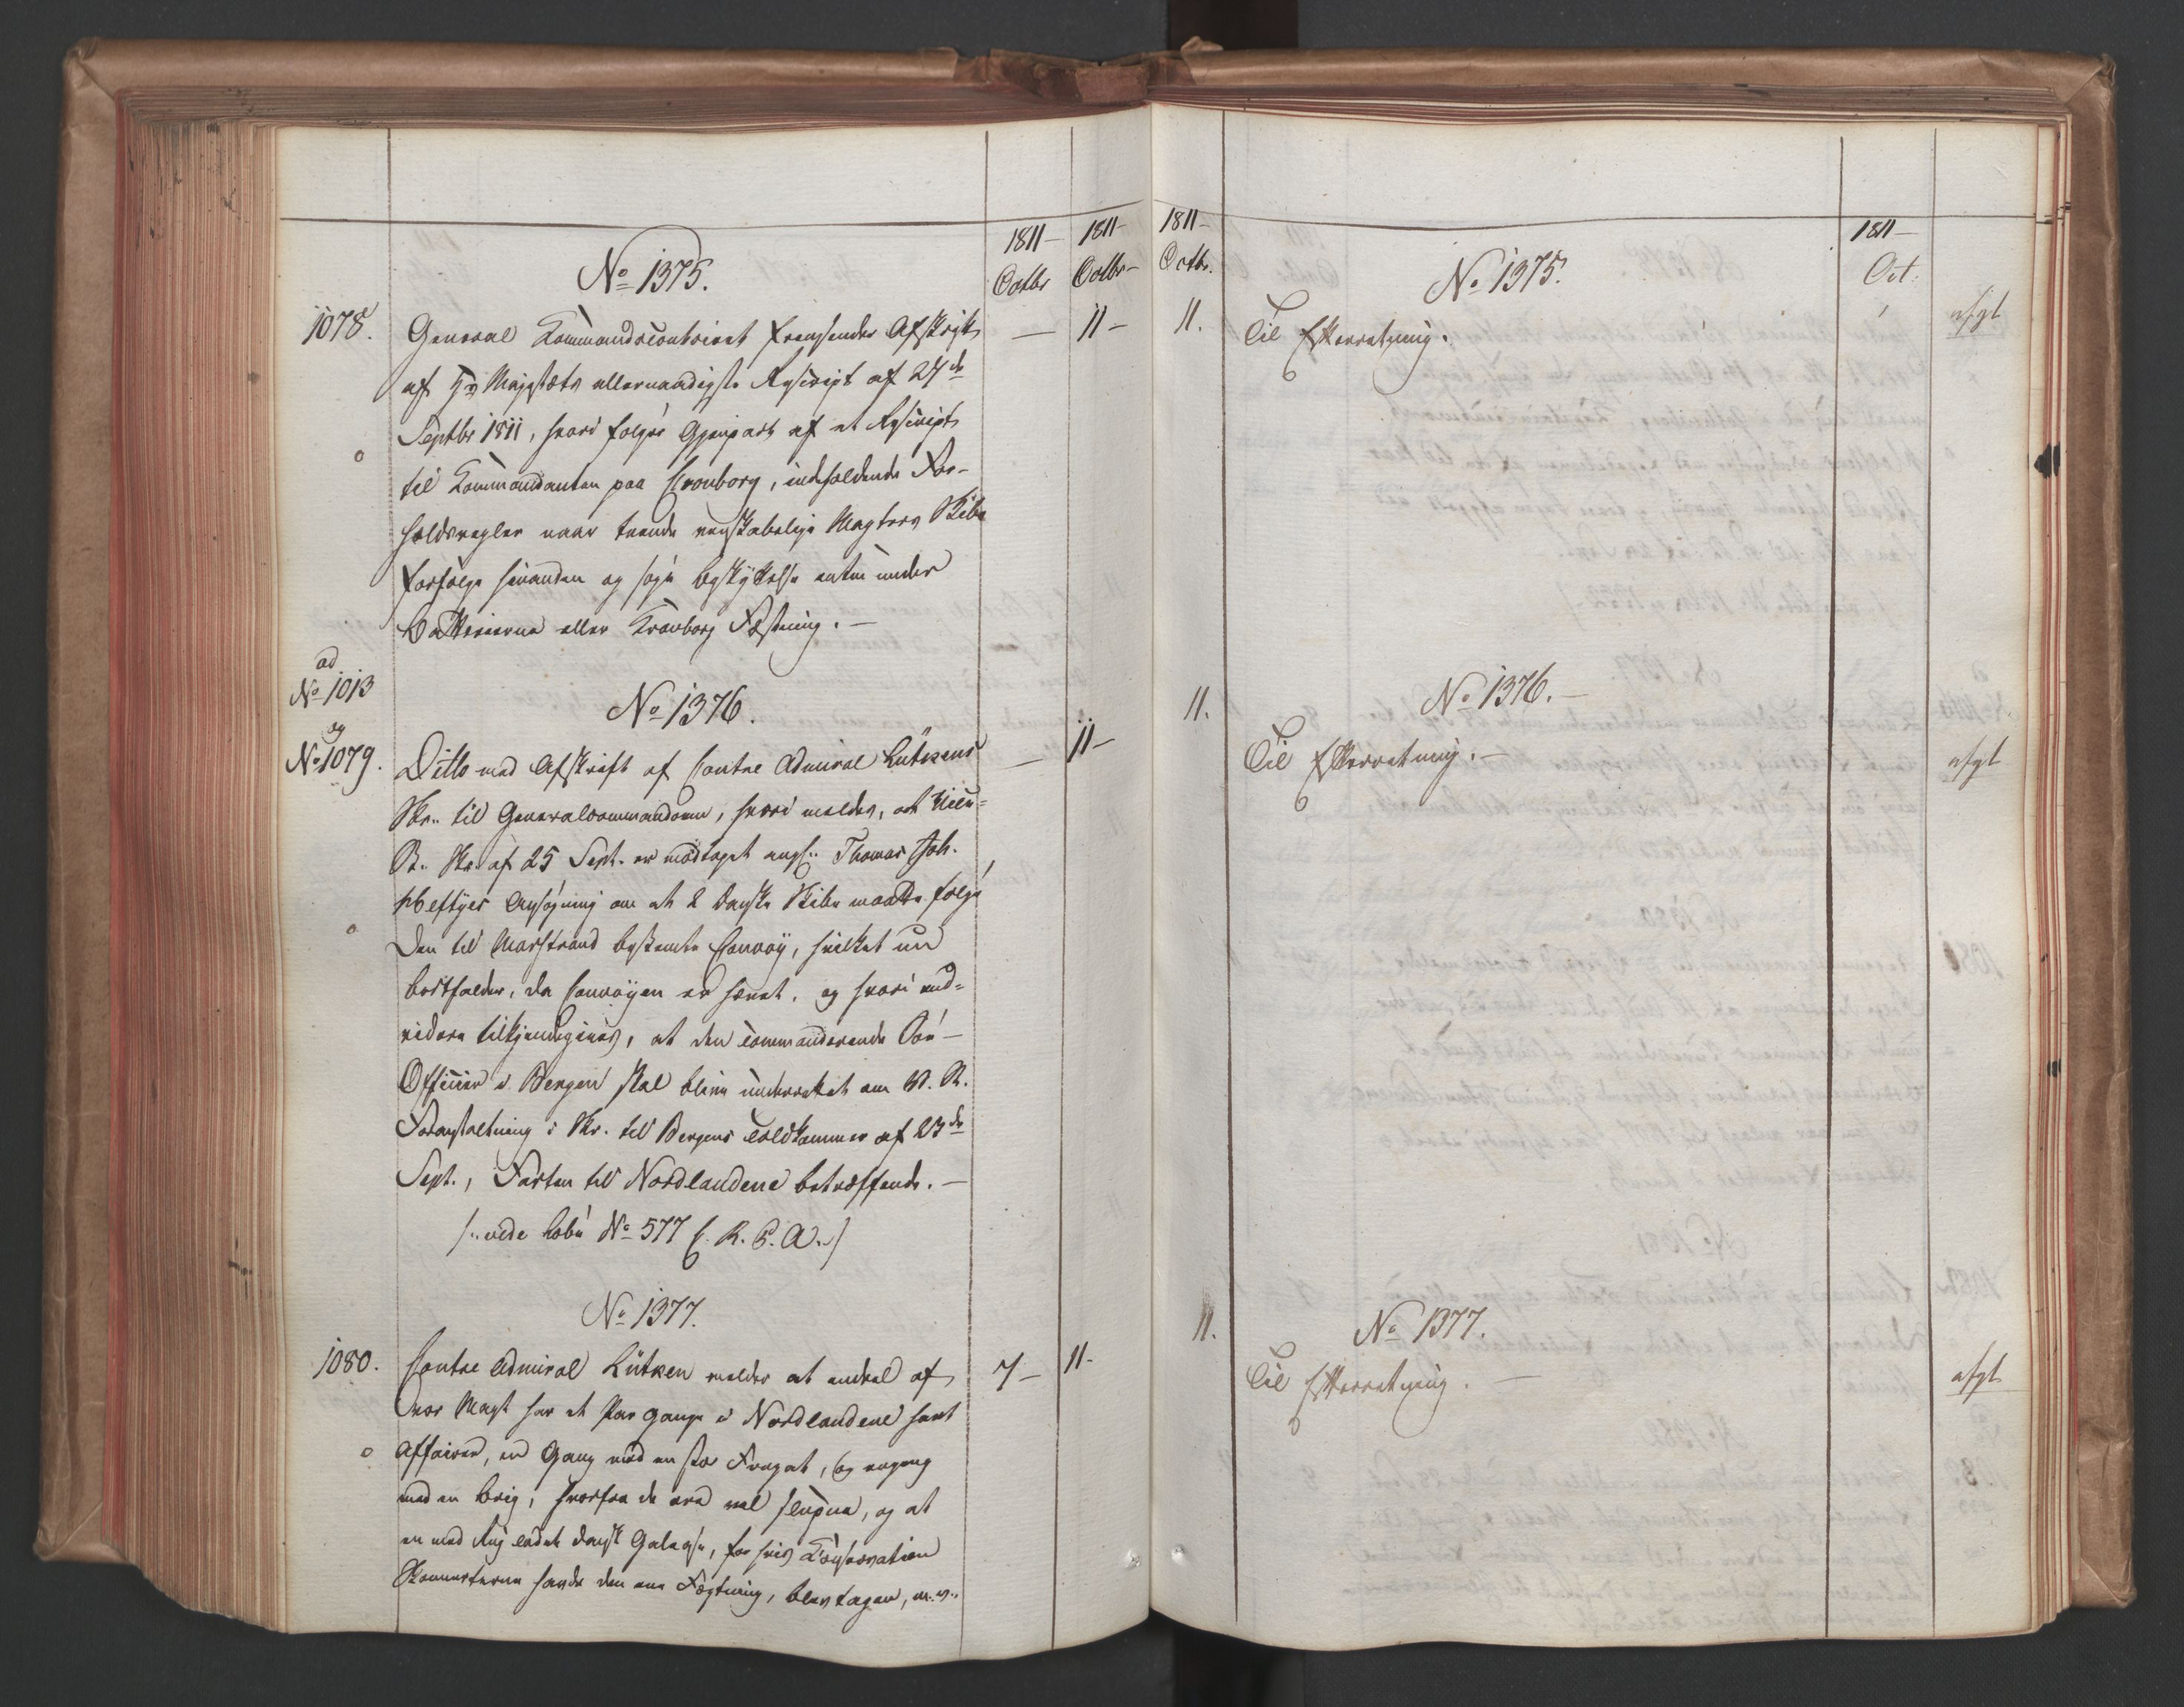 1811— 1811—
Octbr Octbr—
No 1375.
1078. General Kommandscontoiret fremsender Afskrift — 11—
af Hs Majestæts allernaadigste Rescript af 24de
Septbr 1811, hvori følger Gjenpart af et Rescript
til Kommandanten paa Cronborg, indeholdende For-
holdsregler naar tvende venskabelige Magters Skibe
forfølge hinanden og søge beskyttelse enten under
Batterierne eller Kronborg Fæstning. —
ad
No 1013
og
No 1376.
No 1079. Ditto med Afskrift af Contre Admiral Lütkens — 11—
Skr. til Generalcommandoen, hvori meldes, at
R. Skr. af 25 Sept. er modtaget angl. Thomas Joh.
Heftyes Ansøgning om at 2 danske Skibe maatte følge
den til Marstrand bestemte Convoy, hvilket nu
bortfalder, da Convoyen er hævet, og hvori end-
videre tilkjendegives, at den commanderende Søe-
Officier i Bergen skal blive underrettet om R.
Foranstaltning i Skr. til Bergens Toldkammer af 23de
Sept., Farten til Nordlandene betræffende. —
/: vide No 577 C. R. P. A. :/
No 1377.
1080. Contre Admiral Lütken melder at endeel af 7— 11-
vor Magt har et Par gange i Nordlandene havt
Affairer, en Gang med en stor Fregat, og engang
med en brig, hvorfra de ere vel slupne, og at
en med Rug ladet dansk Galease, for hvis Conservation
havde den ene Fægtning, blev tagen, m. v.
1811— 1811—
Octbr. Oct:
No 1375.
11. Til Efterretning. afgl
No 1376.—
11. Til Efterretning. — afgl
No 1377.
11. Til Efterretning. — afgl